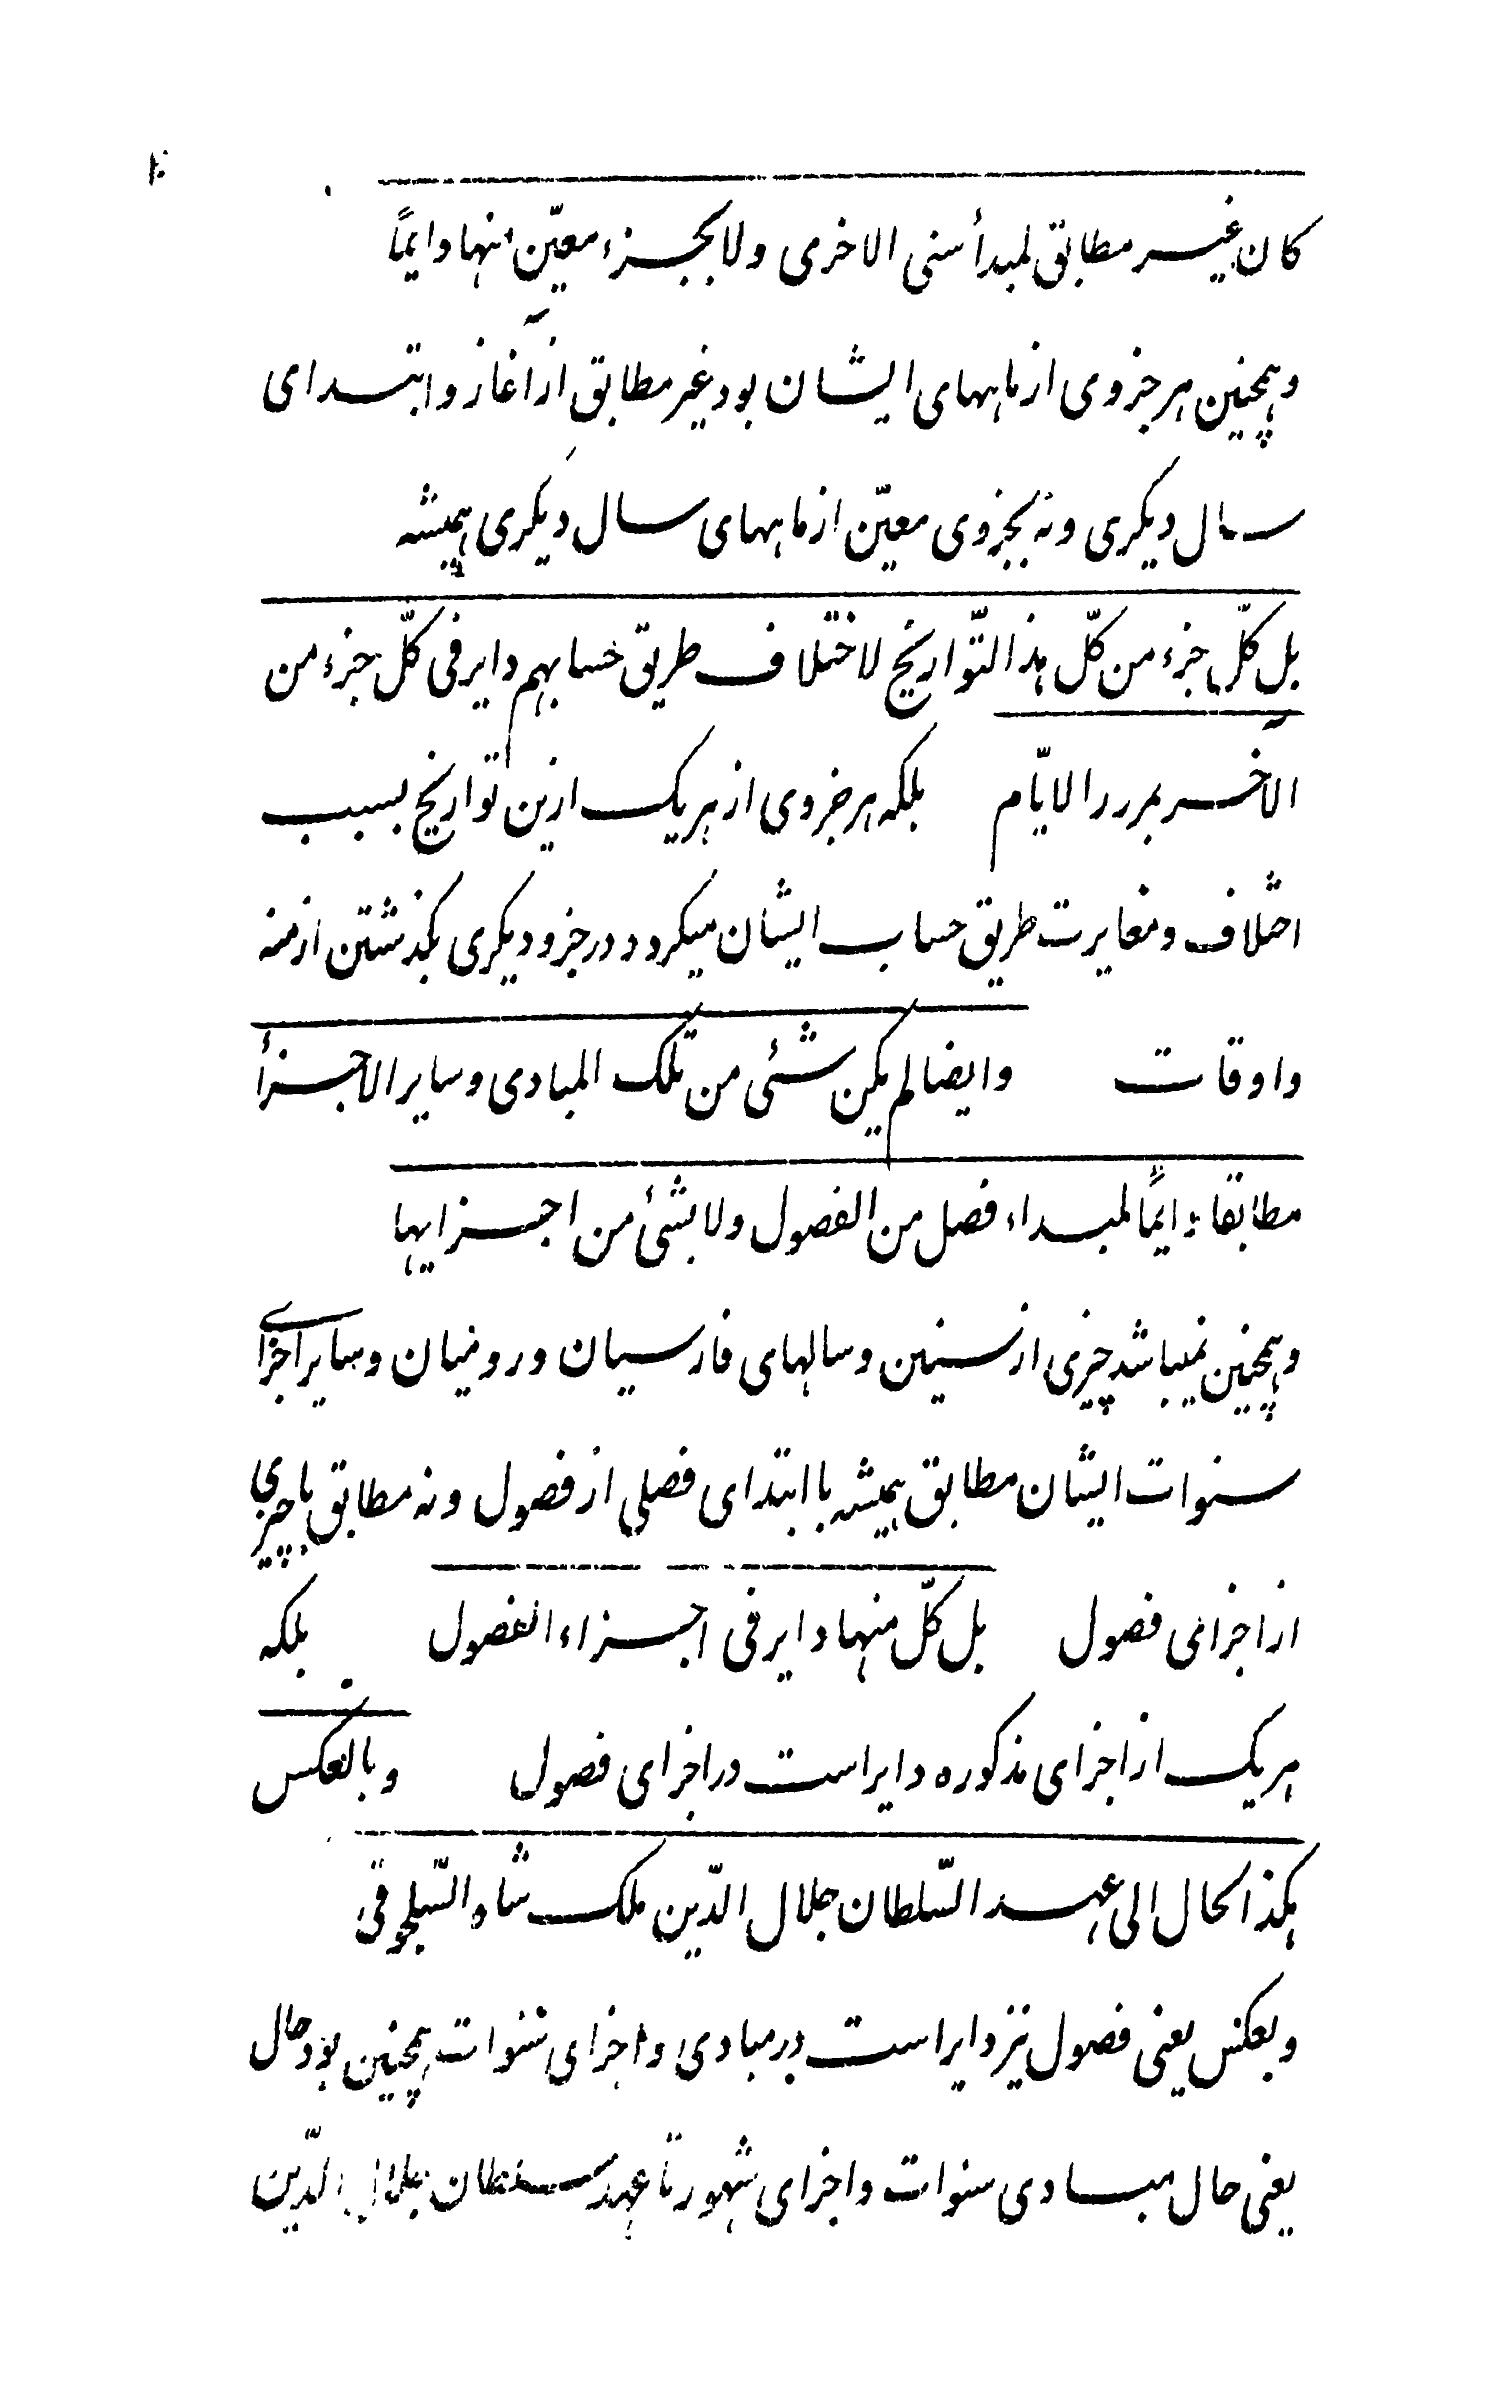 کان غیر مطابق لمبدأ سنی الاخری ولا بجزء معیّن منها دایماً
وهمچنین هر جزوی از ماههای ایشان بود غیر مطابق از آغاز و ابتدای
سال دیکری ونه بجزوی معیّن از ماههای سال دیکری همیشه
بل کلّ جزء من کلّ هذا التّواریخ لاختلاف طریق حسابهم دایر فی کلّ جزء من
الاخر بمرر الایّام بلکه هر جزوی از هر یک ازین تواریخ بسبب
اختلاف ومغایرت طریق حساب ایشان میکردد در جزو دیکری بکذشتن ازمنه
واوقات وایضا لم یکن شئی من تلک المبادی وسایر الاجزأ
مطابقا دایماً لمبداء فصل من الفصول ولا بشئ من اجزایها
وهمچنین نمیباشد چیزی از سنین وسالهای فارسیان ورومیان وسایر اجزای
سنوات ایشان مطابق همیشه با ابتدای فصلی از فصول ونه مطابق با چیزی
از اجزای فصول بل کلّ منها دایر فی اجزاء الفصول بلکه
هر یک از اجزای مذکوره دایر است در اجزای فصول وبالعکس
هکذا الحال الی عهد السّلطان جلال الدّین ملک شاه السّلجوقی
وبعکس یعنی فصول نیز دایر است در مبادی واجزای سنوات همچنین بود حال
یعنی حال مبادی سنوات واجزای شهور تا عهد سلطان جلال الدّین